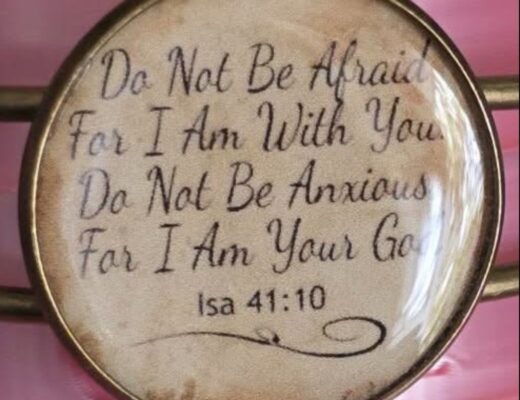 Do Not Be Afraid
For I Am With You.
Do Not Be Anxious
For I Am Your God
Isa 41:10